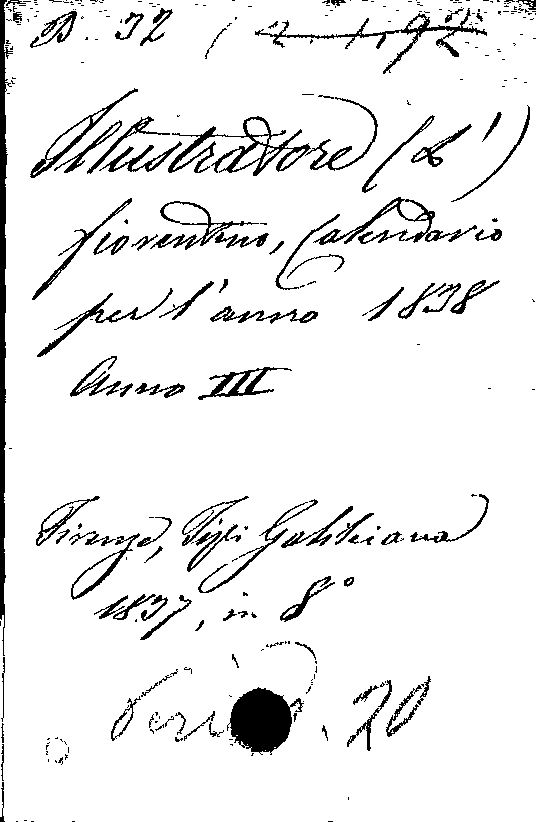 B. 32 / 2. 1. 92
Illustratore (L')
fiorentino, Calendario
per l'anno 1838
Anno III
Firenze, Tipi Galileiana
1837, in 8°
20